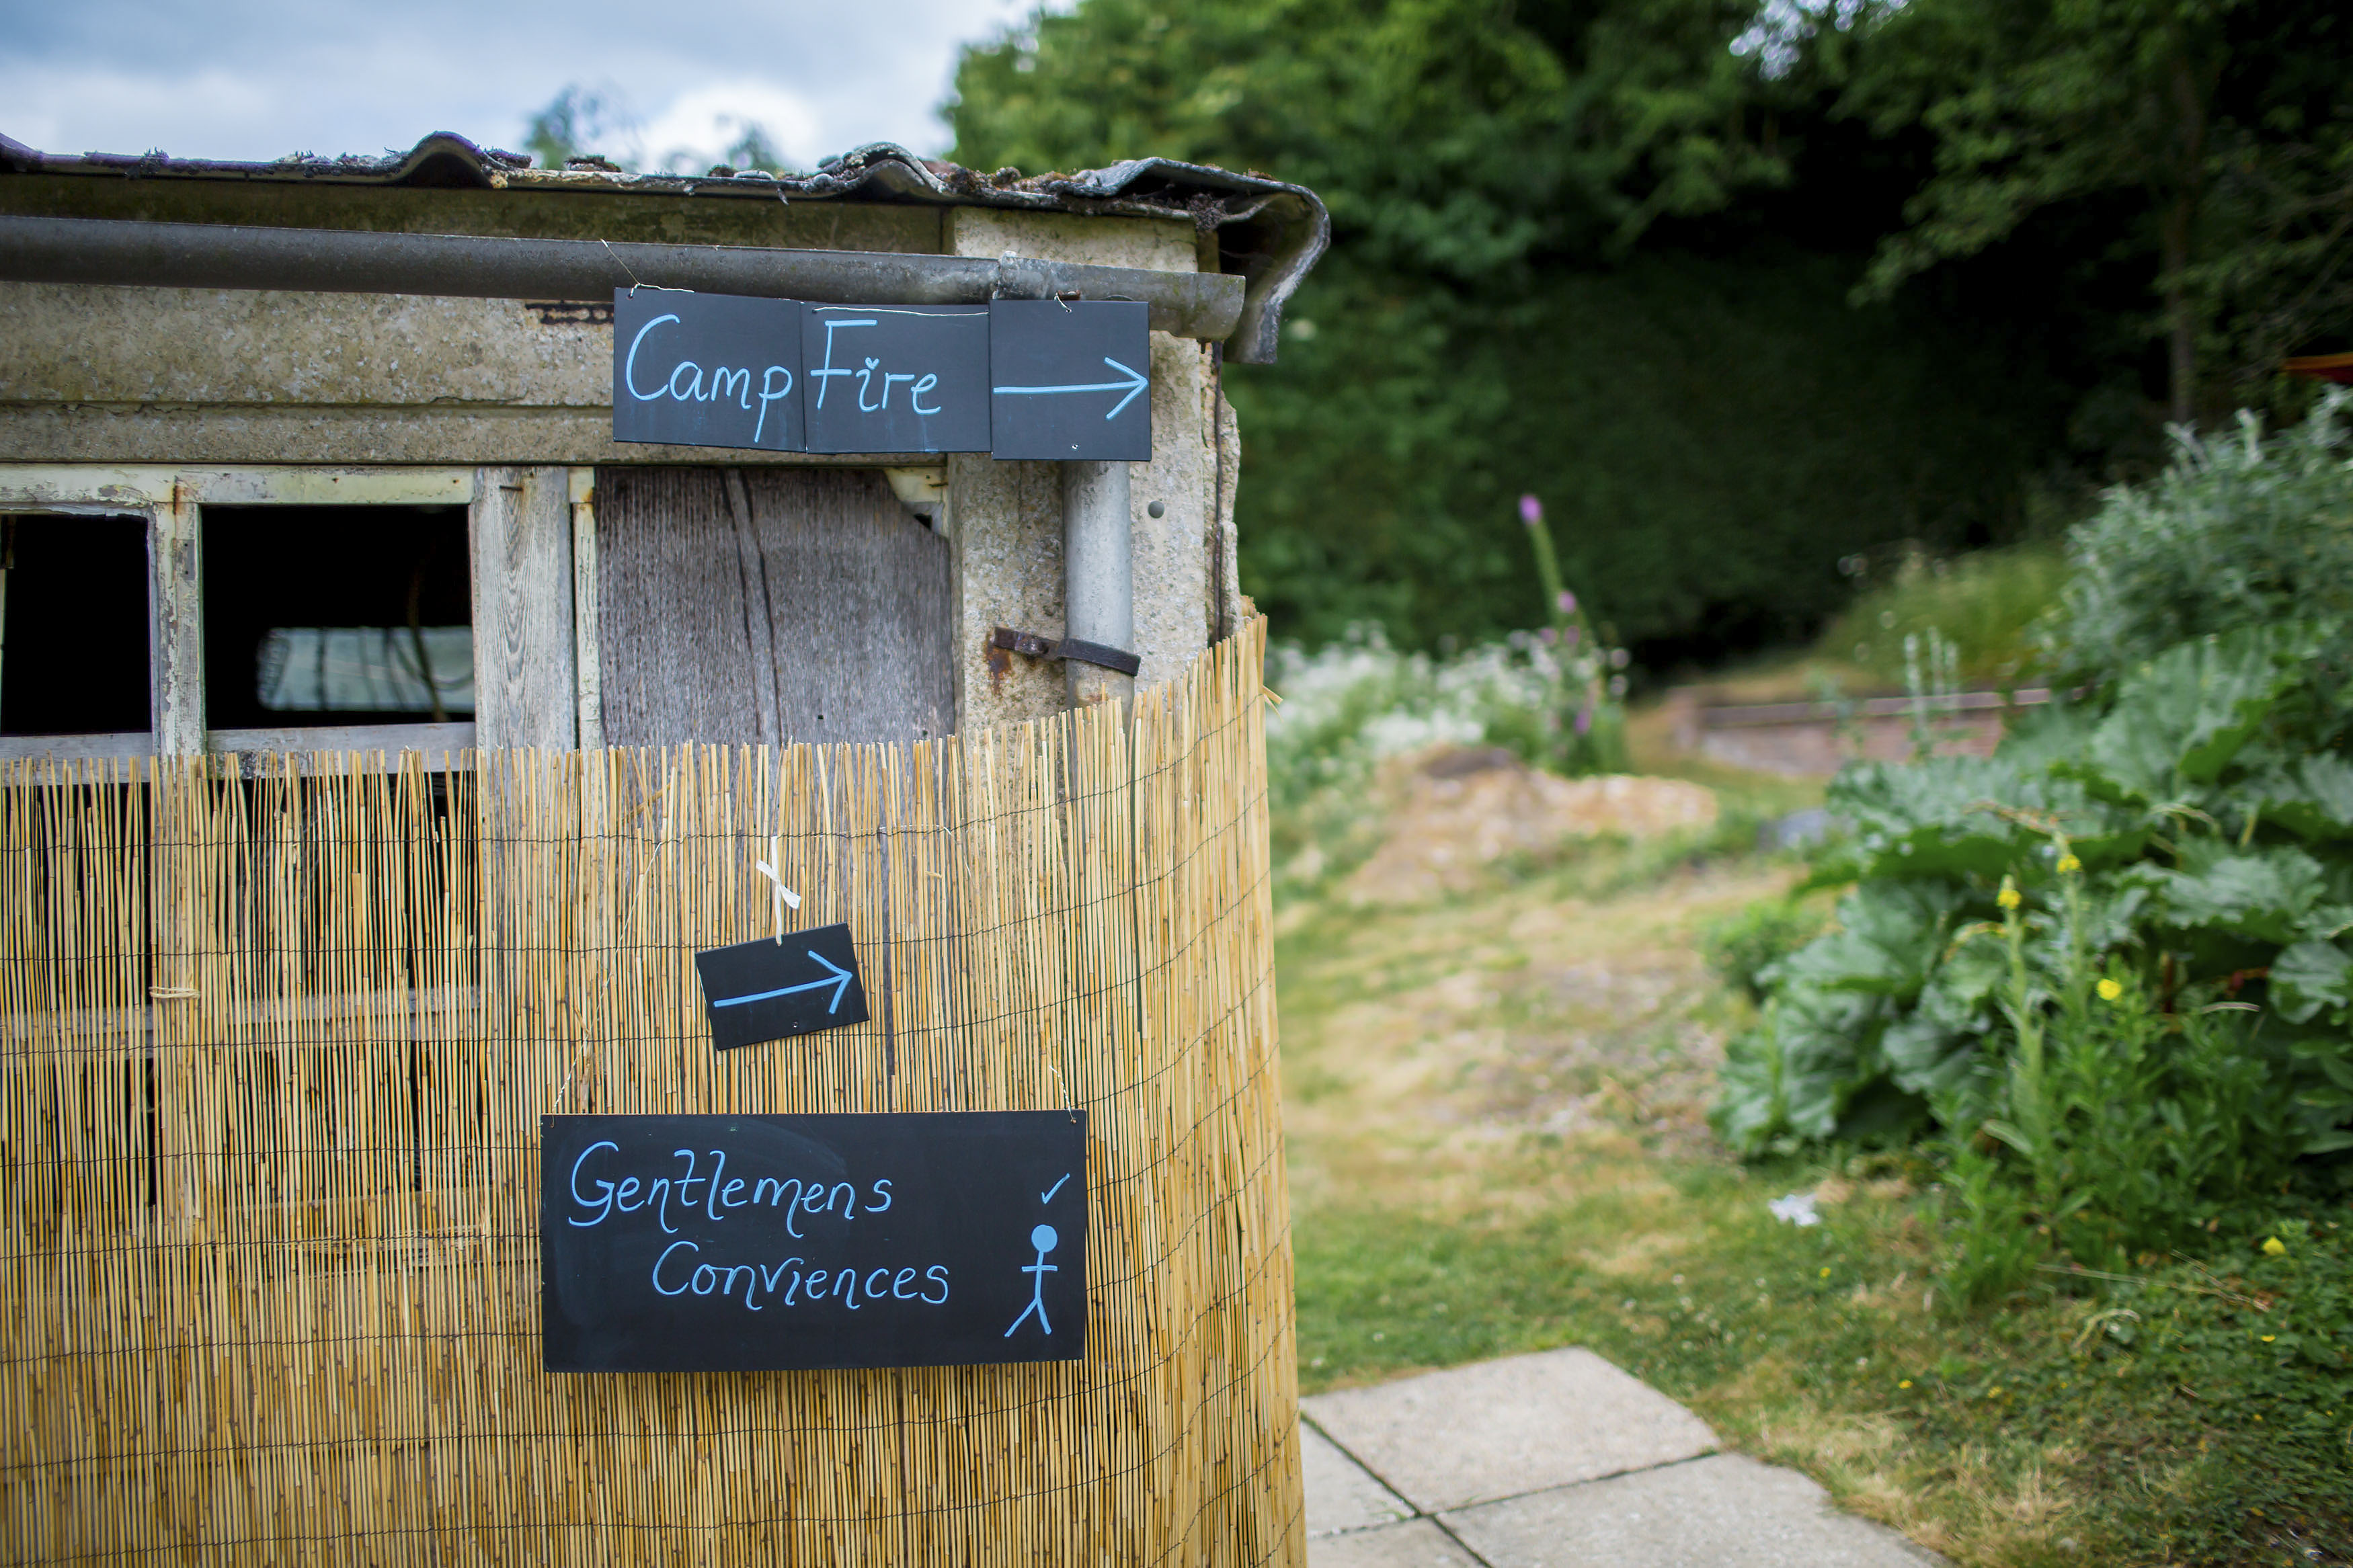 Camp Fire
Gentlemens
Conviences